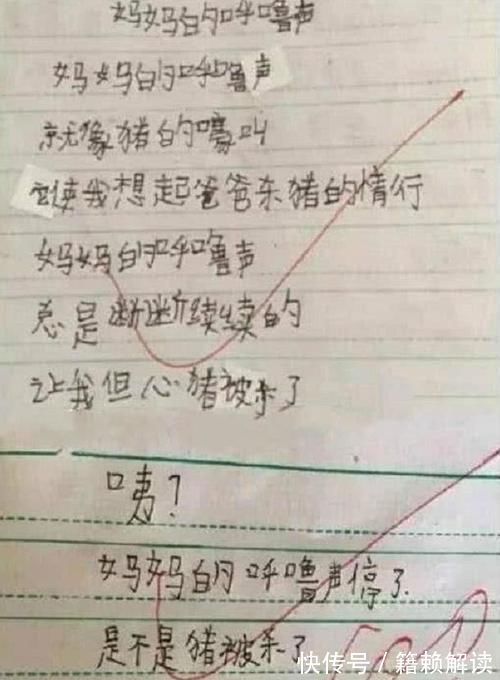 妈妈的呼噜声
妈妈的呼噜声
就像猪的嚎叫
使我想起爸爸杀猪的情行
妈妈的呼噜声
总是断断续续的
让我但心猪被杀了
咦?
妈妈的呼噜声停了.
是不是猪被杀了
快传号/籍赖解读